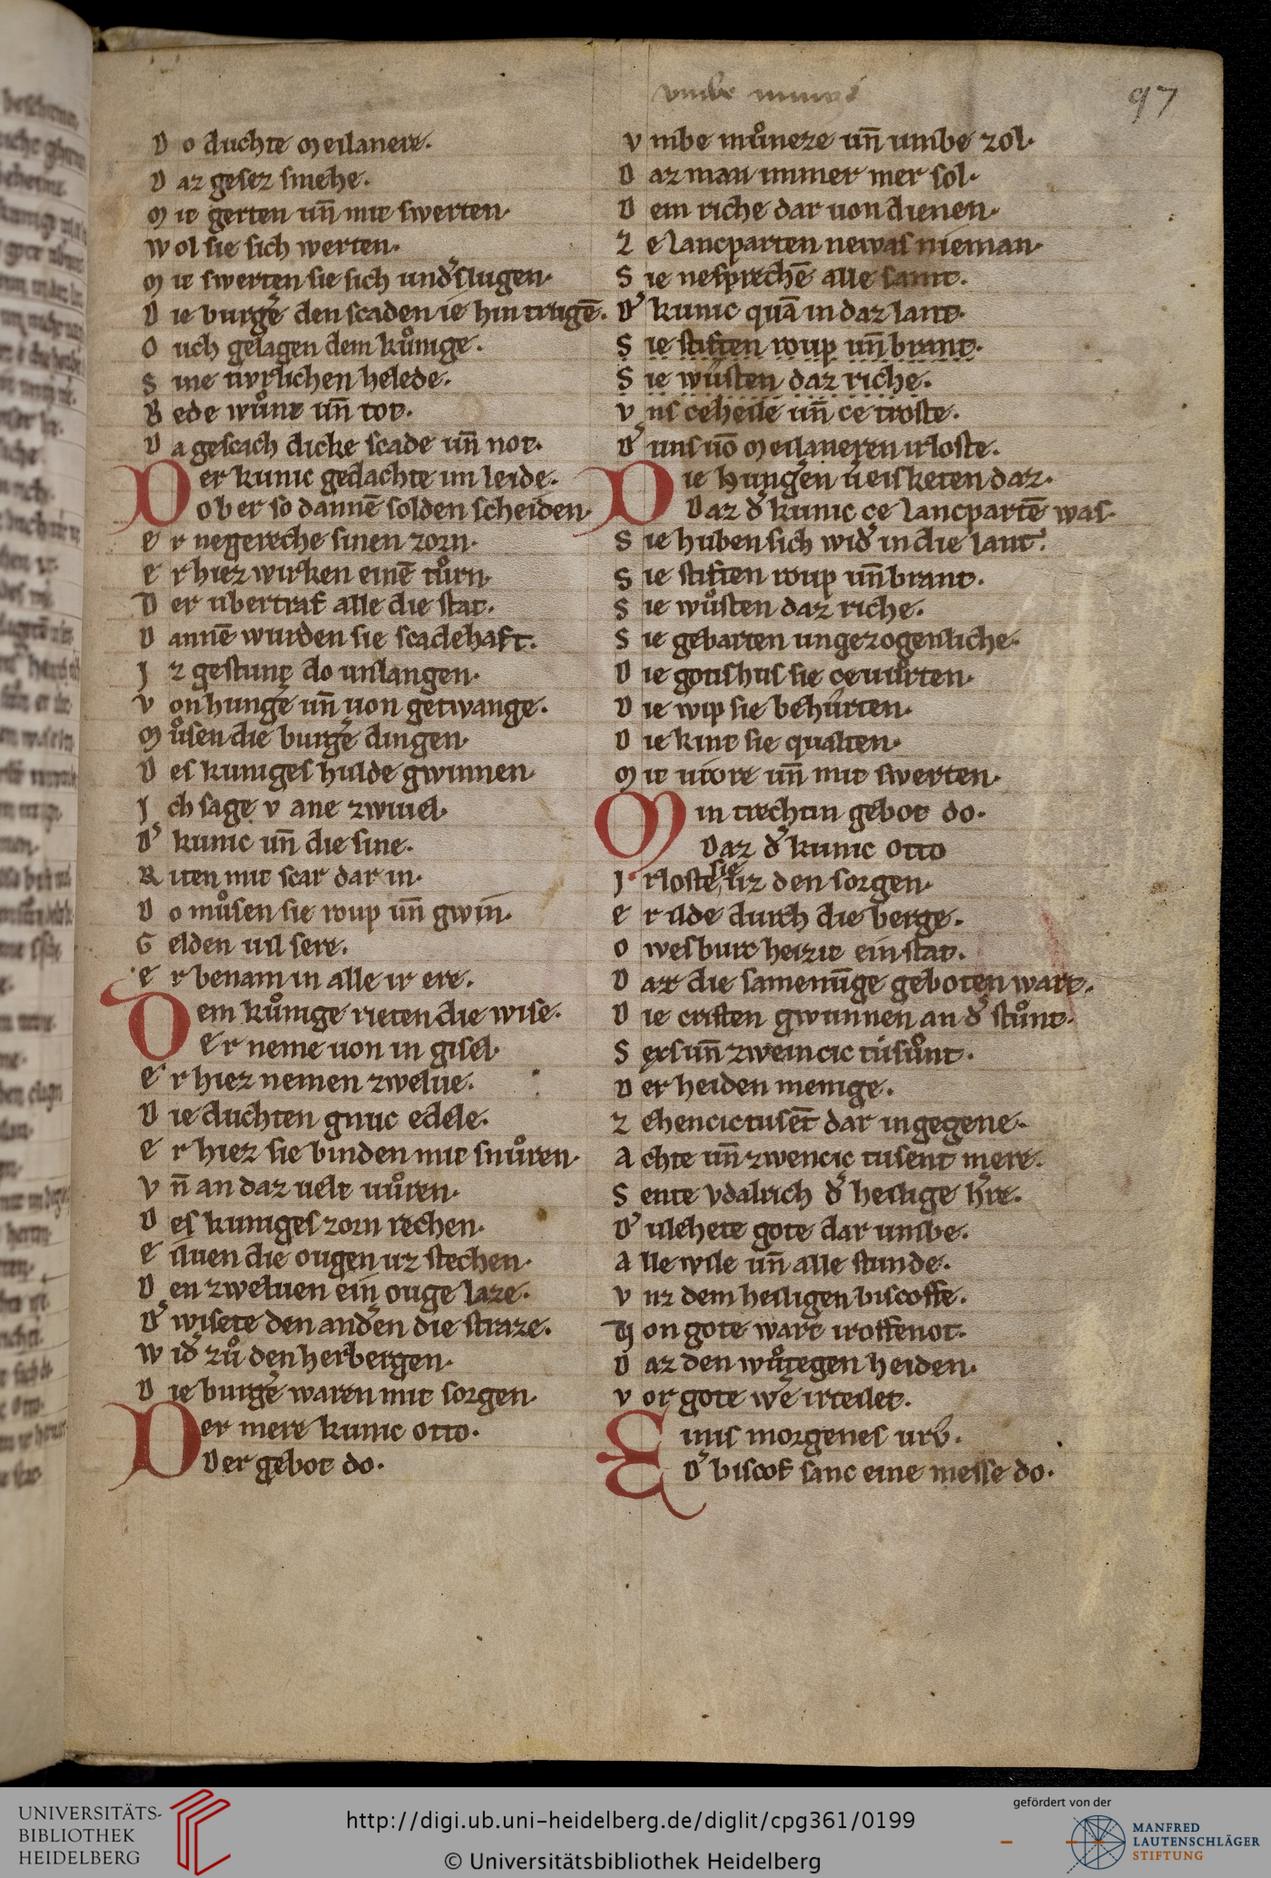 vmbe
97
D o duchte meilanere.
D az gesez smehe.
M it gerten un̄ mit swerten.
W ol sie sich werten.
M it swerten sie sich und̓slugen.
D ie burg̓e den scaden ie hin trugē.
O uch gelagen dem kůnige.
S ine tivrlichen helede.
B ede wůnt un̄ tot.
D a gescach dicke scade un̄ not.
Der kunic gedachte im leide.
Ob er so dannē solden scheiden.
E r negereche sinen zorn.
E r hiez wirken einē tůrn.
D er ubertraf alle die stat.
D annē wurden sie scadehaft.
I z gestunt do unlangen.
V on hung̓e un̄ uon getwange.
M ůsen die burg̓e dingen.
D es kuniges hulde gwinnen.
I ch sage v ane zwiuel.
D̓ kunic un̄ die sine.
R iten mit scar dar in.
D o můsen sie roup un̄ gwin.
G elden uil sere.
E r benam in alle ir ere.
Dem kůnige rieten die wise.
Er neme uon in gisel.
E r hiez nemen zwelue.
D ie duchten gnuc edele.
E r hiez sie binden mit snůren.
V n̄ an daz uelt uůren.
D es kuniges zorn rechen.
E iluen die ougen uz stechen.
D en zweluen ein ouge laze.
D̓ wisete den and̓en die straze.
W id̓ zů den herbergen.
D ie burg̓e waren mit sorgen.
Der mere kunic otto.
Der gebot do.
V mbe můneze un̄ umbe zol.
D az man immer mer sol.
D em riche dar uon dienen.
Z e lancparten newas nieman.
S ie nesprechē alle samt.
D̓ kunic quā in daz lant.
S ie stiften roup un̄ brant.
S ie wůsten daz riche.
V ns ceheile un̄ ce troste.
D̓ uns uō meilaneren irloste.
Die hung̓en u̓eisketen daz.
Daz d̓ kunic ce lancpartē was.
S ie huben sich wid̓ in die lant.
S ie stiften roup un̄ brant.
S ie wůsten daz riche.
S ie gebarten ungezogenliche.
D ie gotishus sie ceuůrten.
D ie wip sie behůrten.
D ie kint sie qualten.
M it uiore un̄ mit swerten.
Min trechtin gebot do.
Daz d̓ kunic otto
I rloste sie uz den sorgen.
E r ilde durch die berge.
O wesburc heizit ein stat.
D ar die samenūge geboten wart.
D ie cristen gwunnen an d̓ stůnt.
S ers un̄ zweincic tusůnt.
D er heiden menige.
Z ehencic tusēt dar ingegene.
A chte un̄ zwencic tusent mere.
S ente vdalrich d̓ heilige h̓re.
D̓ ulehete gote dar umbe.
A lle wile un̄ alle stunde.
V nz dem heiligen biscoffe.
V on gote wart iroffenot.
D az den wůtegen heiden.
V or gote we̓ irteilet.
Einis morgenes urů.
D̓ biscof sanc eine messe do.
UNIVERSITÄTS-
BIBLIOTHEK
HEIDELBERG
http://digi.ub.uni-heidelberg.de/diglit/cpg361/0199
© Universitätsbibliothek Heidelberg
gefördert von der
MANFRED
LAUTENSCHLÄGER
STIFTUNG